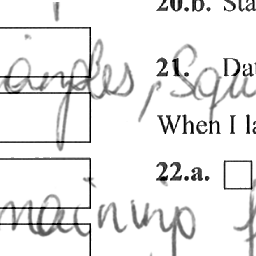 20.b. Sta
angles, Squ
21. Dat
When I la
22.a.
maining f